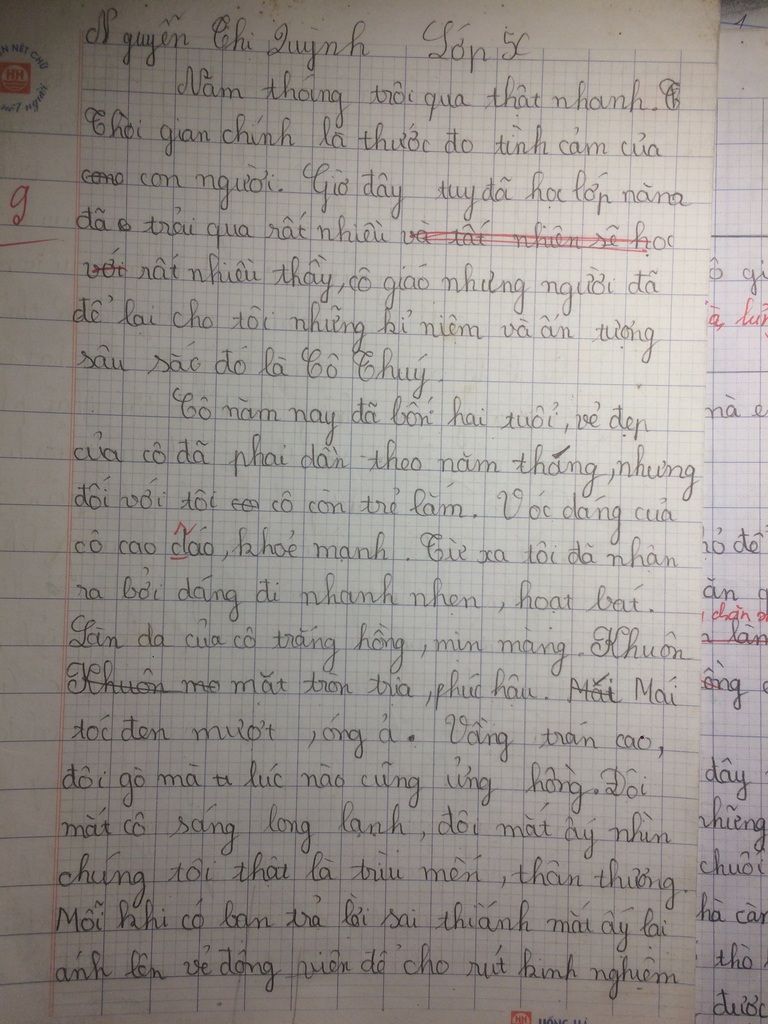 Nguyễn Thị Quỳnh Lớp 5C
Năm tháng trôi qua thật nhanh.
Thời gian chính là thước đo tình cảm của
con người. Giờ đây tuy đã học lớp năm
đã trải qua rất nhiều và tất nhiên sẽ học
với rất nhiều thầy, cô giáo nhưng người đã
để lại cho tôi những kỉ niệm và ấn tượng
sâu sắc đó là Cô Thuý.
Cô năm nay đã bốn hai tuổi, vẻ đẹp
của cô đã phai dần theo năm tháng, nhưng
đối với tôi cô còn trẻ lắm. Vóc dáng của
cô cao dáo, khoẻ mạnh. Từ xa tôi đã nhận
ra bởi dáng đi nhanh nhẹn, hoạt bát.
Làn da của cô trắng hồng, mịn màng. Khuôn
Khuôn mặt tròn trịa, phúc hậu. Mắt Mái
tóc đen mượt, óng ả. Vầng trán cao,
đôi gò má lúc nào cũng ửng hồng. Đôi
mắt cô sáng long lanh, đôi mắt ấy nhìn
chúng tôi thật là trìu mến, thân thương.
Mỗi khi có bạn trả lời sai thì ánh mắt ấy lại
ánh lên vẻ động viên để cho rút kinh nghiệm
9
HH
1
nà e
ăn
dây
những
chuối
thò
được